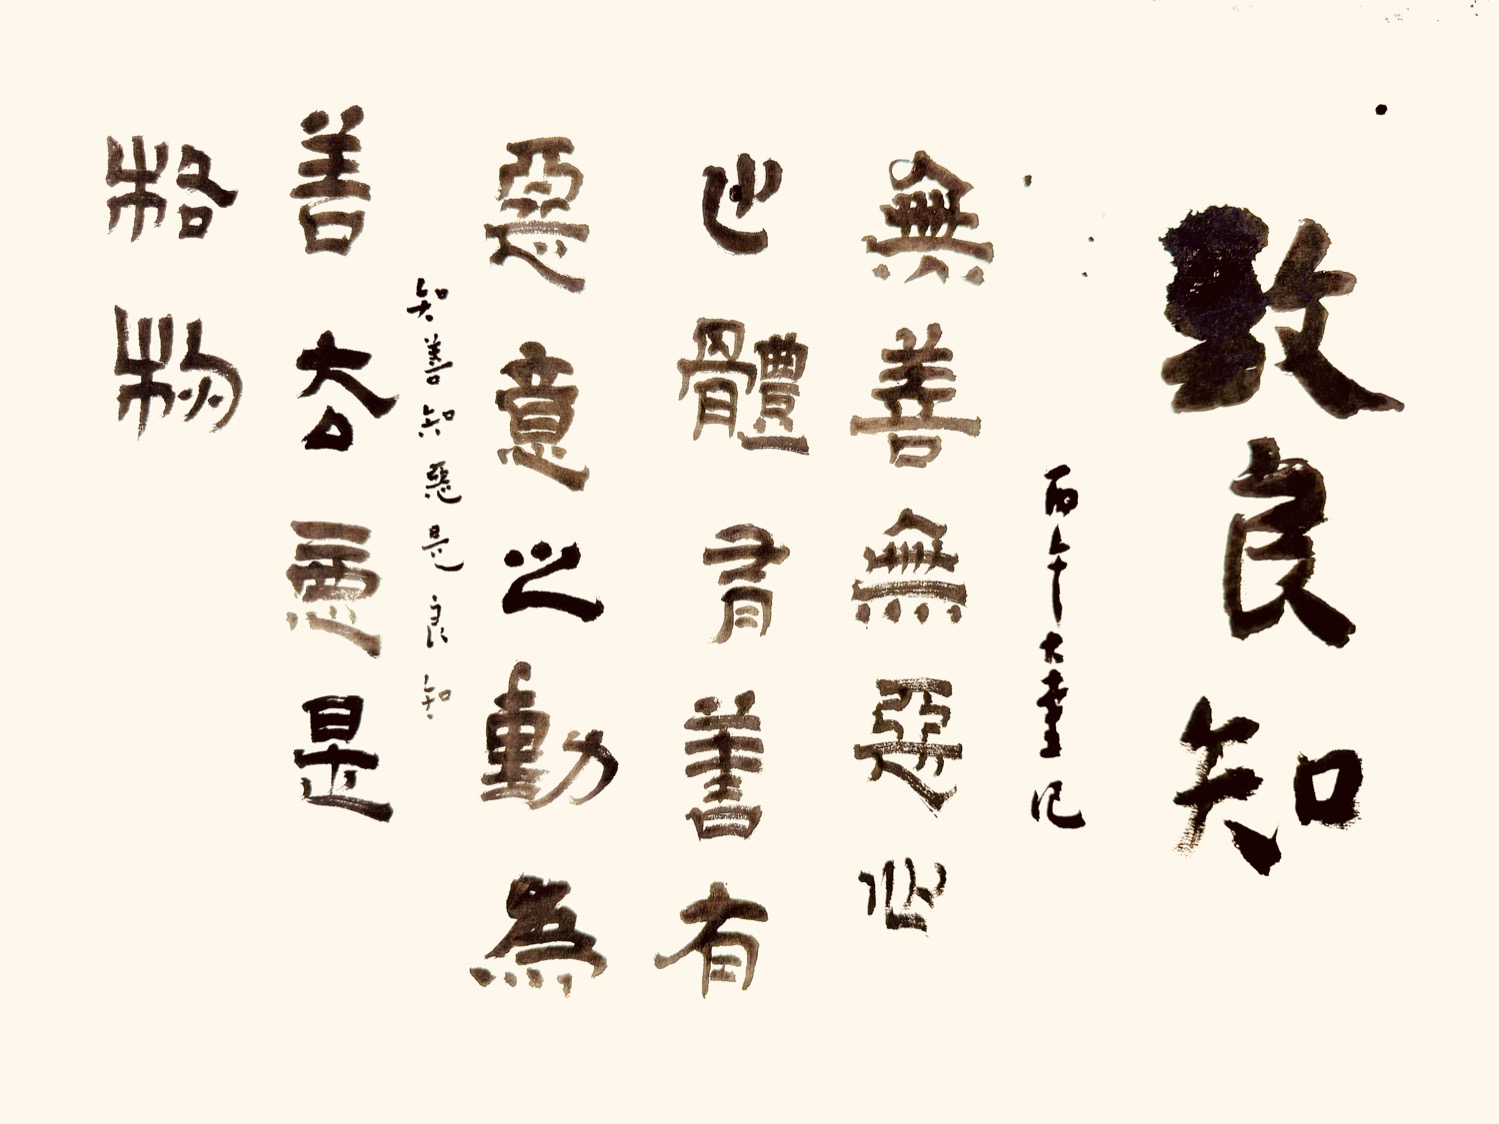 致良知
丙午大書記
無善無惡心
之體有善有
惡意之動為
知善知惡是良知
善去惡是
格物